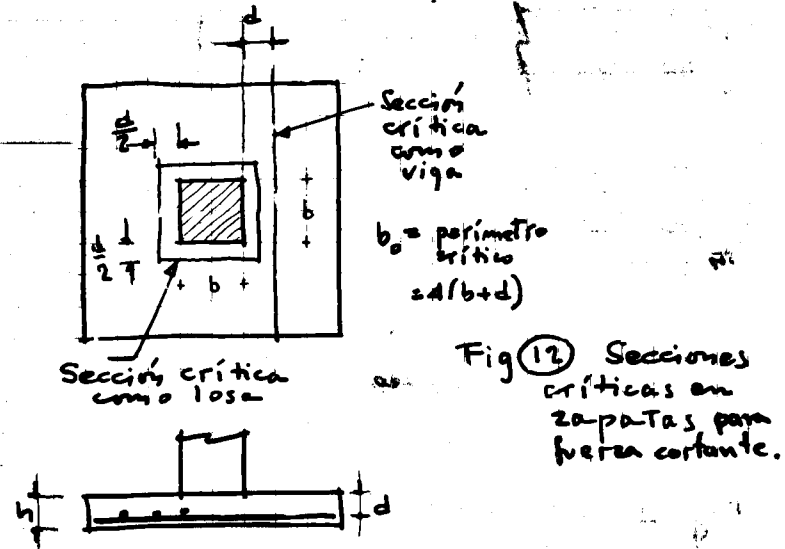 d
d/2
Sección
crítica
como
viga
b
b₀ = perímetro
crítico
= 4(b+d)
d/2
b
Sección crítica
como losa
Fig 12 Secciones
críticas en
zapatas para
fuerza cortante.
h
d